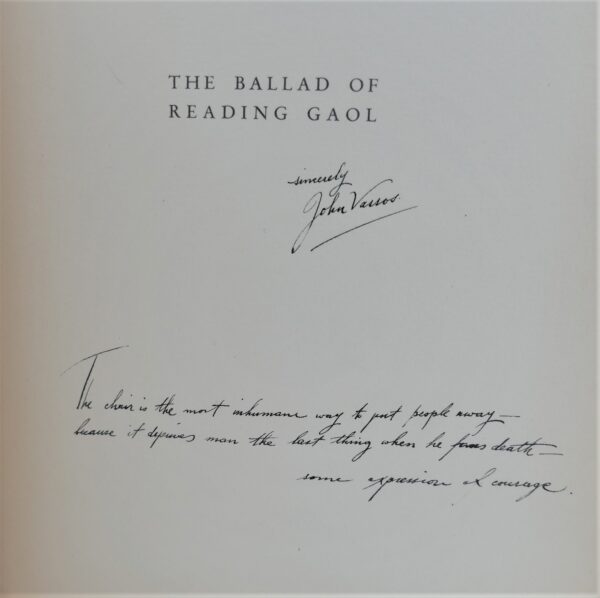 THE BALLAD OF
READING GAOL
sincerely
John Vassos
The chair is the most inhumane way to put people away—
because it deprives man the last thing when he faces death—
some expression of courage.